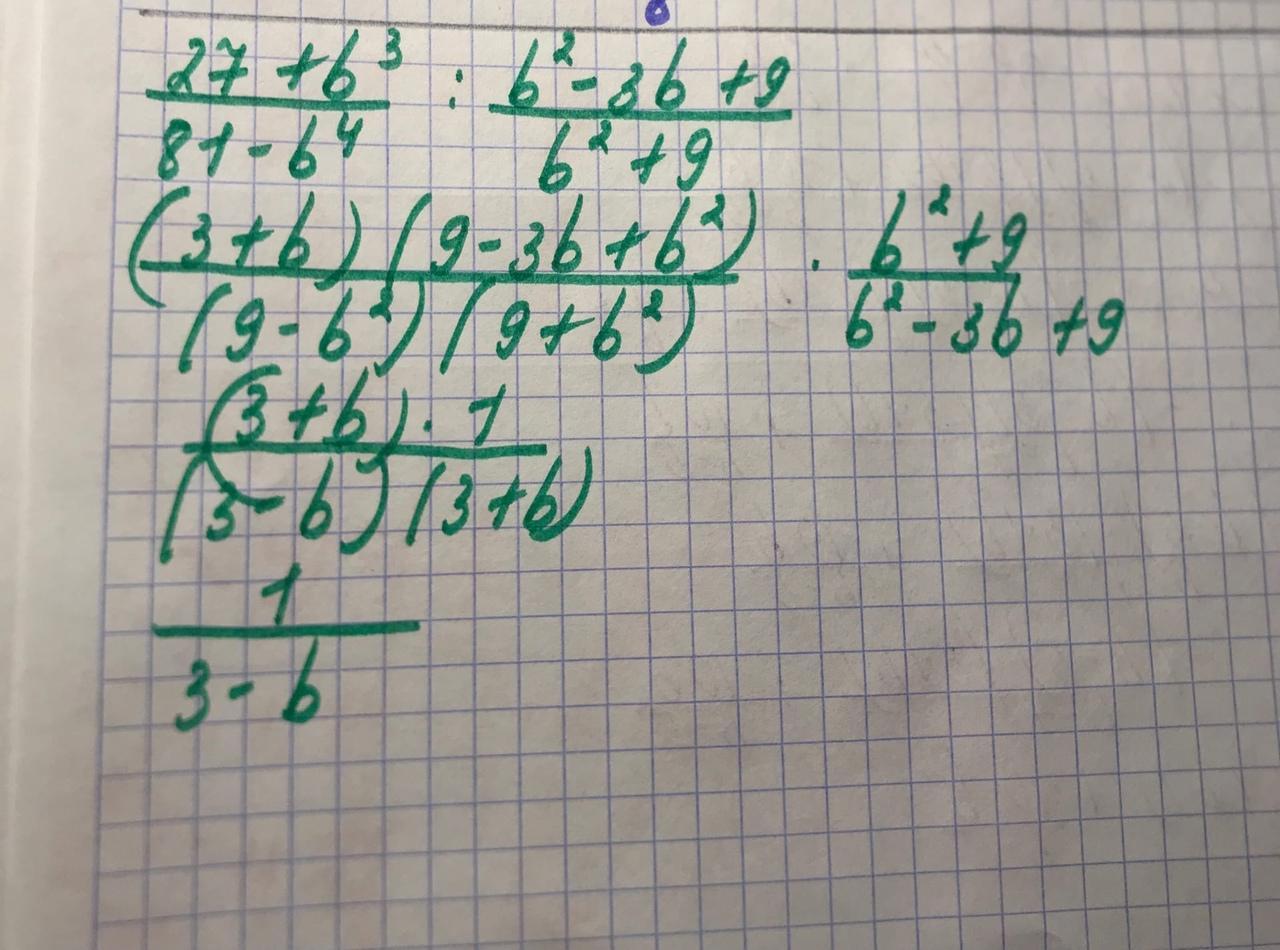 27 + b³ / 81 - b⁴ : b² - 3b + 9 / b² + 9
(3 + b) (9 - 3b + b²) / (9 - b²) (9 + b²) · b² + 9 / b² - 3b + 9
(3 + b) · 1 / (3 - b) (3 + b)
1 / 3 - b